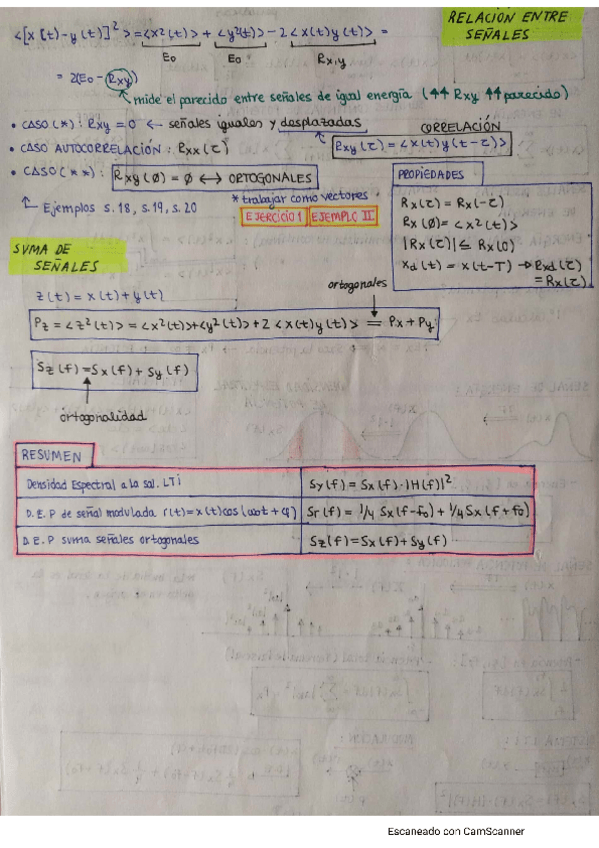 RELACIÓN ENTRE
SEÑALES
<[x(t)-y(t)]²> = <x²(t)> + <y²(t)> - 2<x(t)y(t)> =
E₀ E₀ Rx,y
= 2(E₀ - Rxy)
mide el parecido entre señales de igual energía (↑↑ Rxy ↑↑ parecido)
• CASO (*): Rxy = 0 ← señales iguales y desplazadas
CORRELACIÓN
• CASO AUTOCORRELACIÓN: Rxx(τ)
Rxy(τ) = <x(t)y(t-τ)>
• CASO (**): Rxy(0) = 0 ↔ ORTOGONALES
* trabajar como vectores
Ejemplos s.18, s.19, s.20
EJERCICIO 1 EJEMPLO II
PROPIEDADES
Rx(τ) = Rx(-τ)
Rx(0) = <x²(t)>
|Rx(τ)| ≤ Rx(0)
xd(t) = x(t-T) → Rxd(τ)
= Rx(τ)
SUMA DE
SEÑALES
z(t) = x(t) + y(t)
ortogonales
Pz = <z²(t)> = <x²(t)> + <y²(t)> + 2<x(t)y(t)> = Px + Py
Sz(f) = Sx(f) + Sy(f)
ortogonalidad
RESUMEN
Densidad Espectral a la sal. LTi Sy(f) = Sx(f)·|H(f)|²
D.E.P de señal modulada r(t) = x(t)cos(ω₀t + φ) Sr(f) = 1/4 Sx(f-f₀) + 1/4 Sx(f+f₀)
D.E.P suma señales ortogonales Sz(f) = Sx(f) + Sy(f)
Escaneado con CamScanner